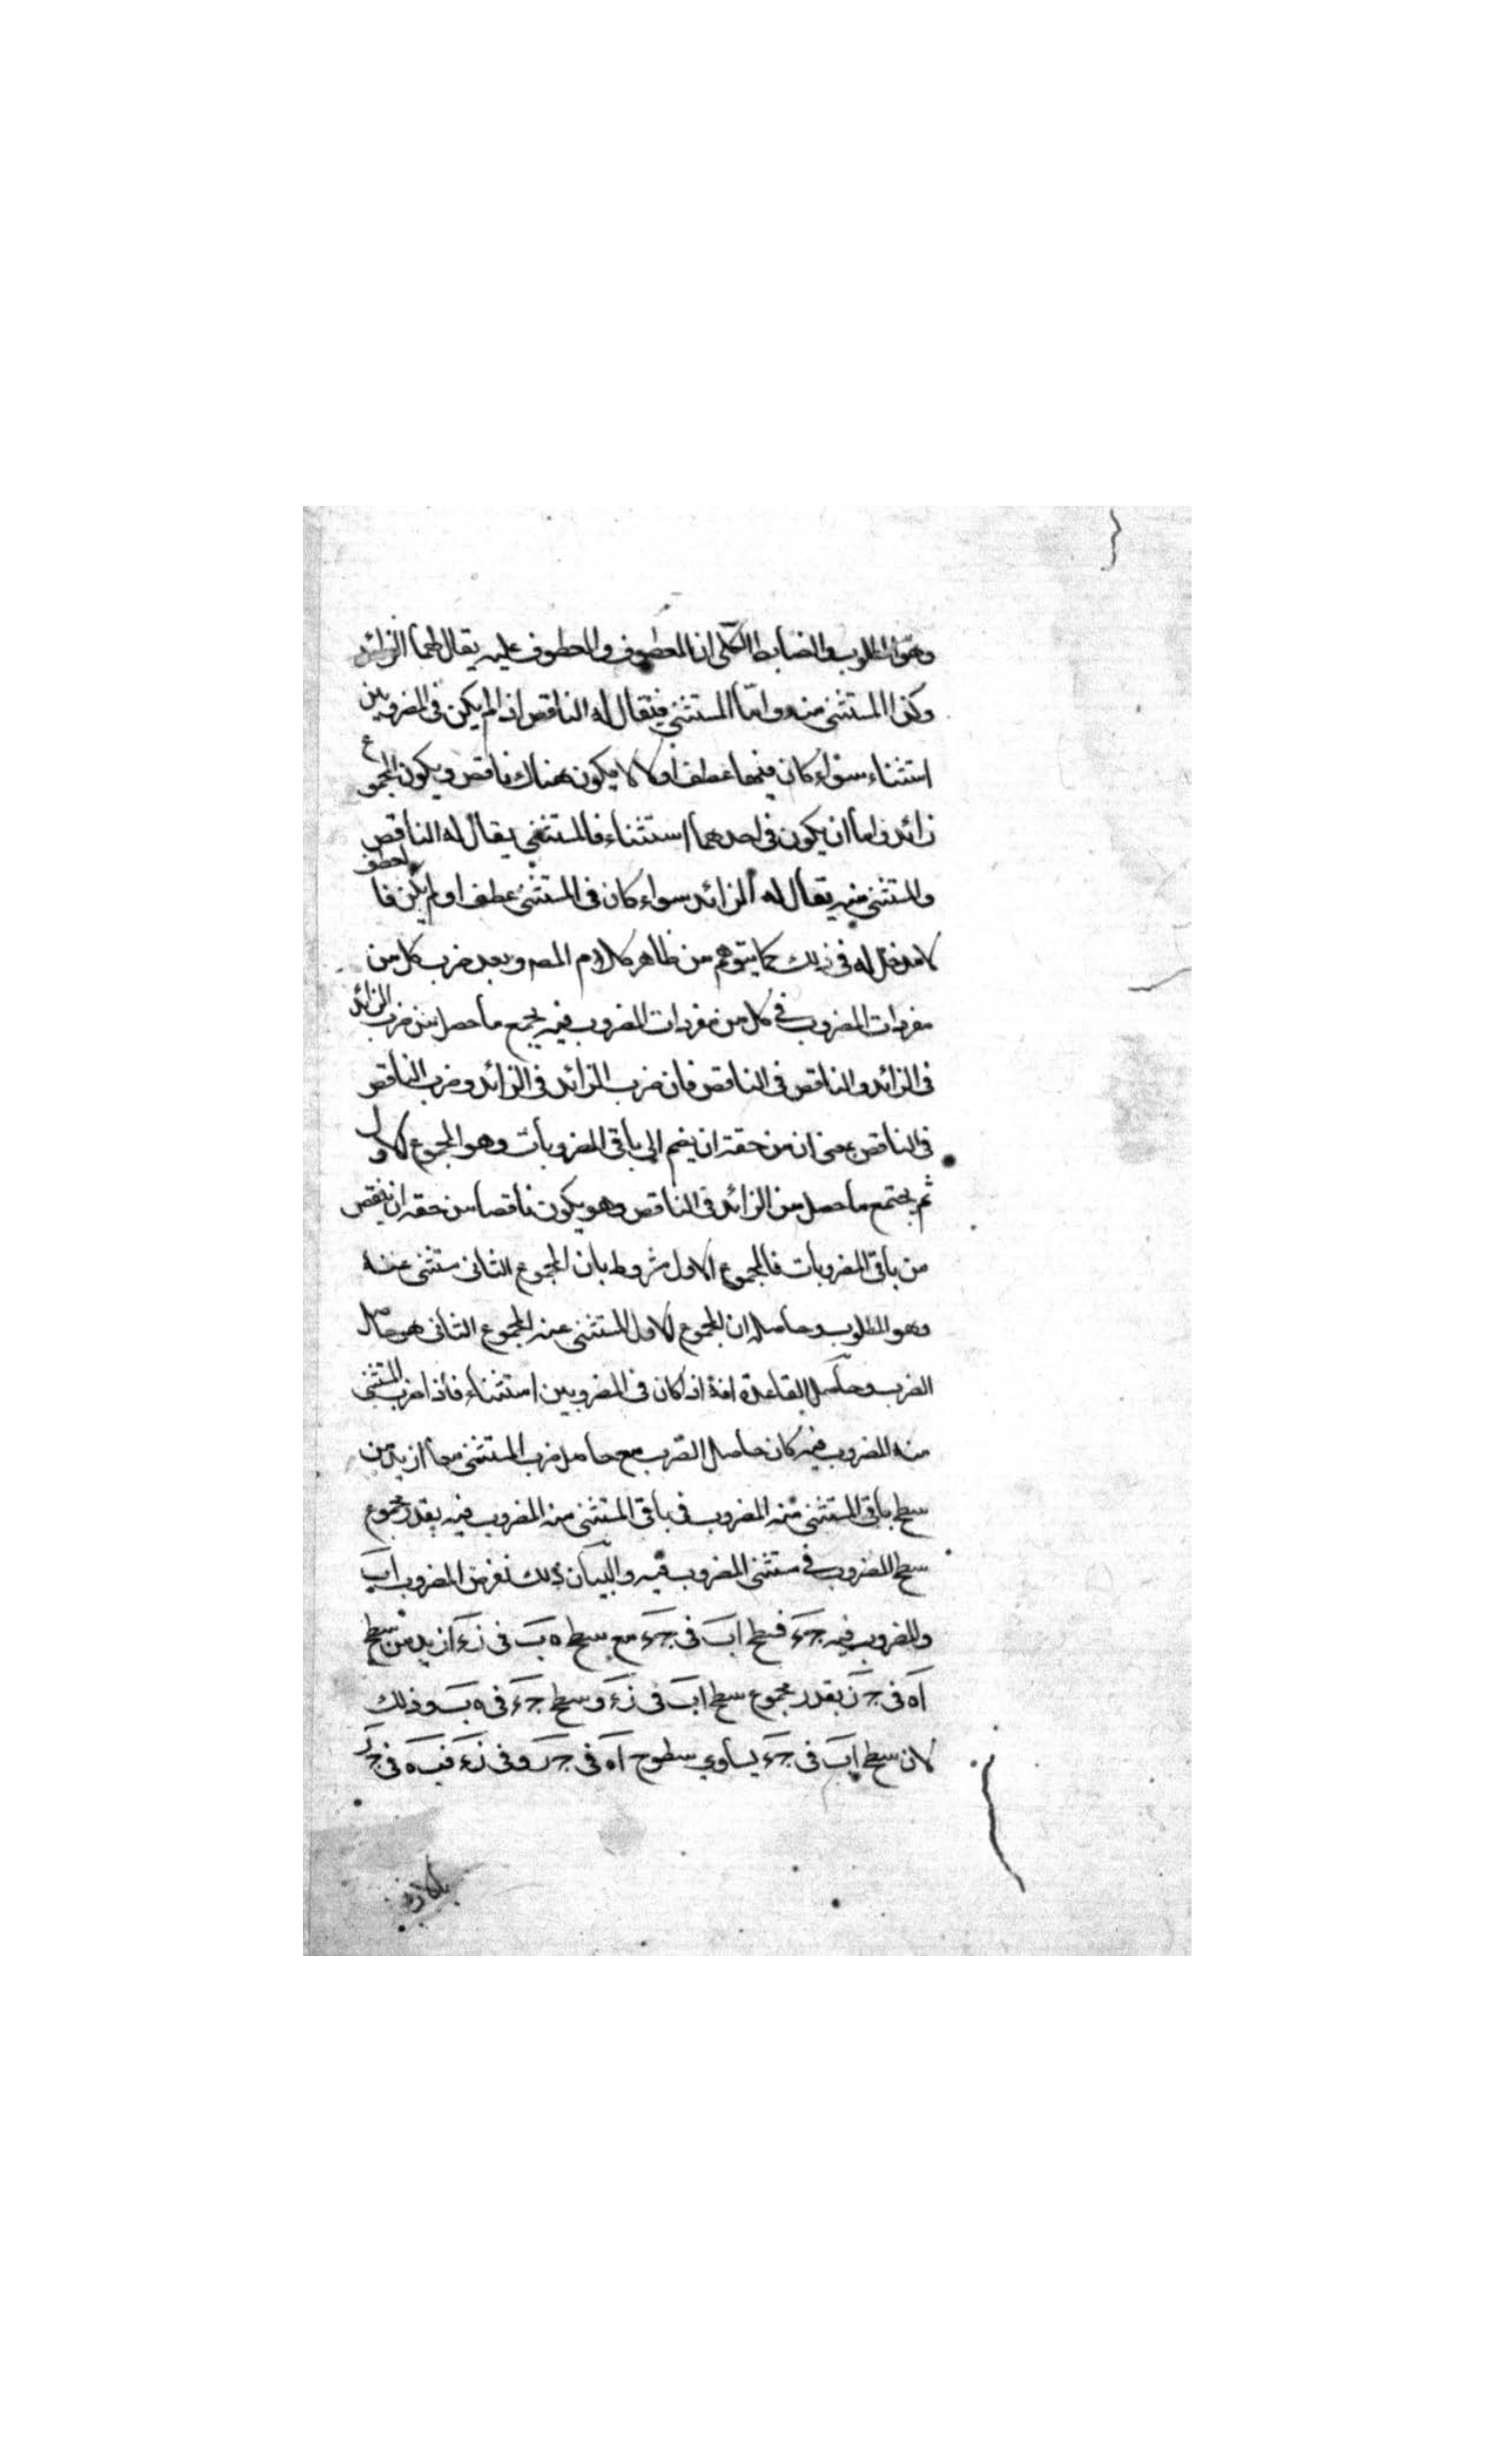 وهو المطلوب والضابط الكلى ان المعطوف والمعطوف عليه يقال لهما الزائد
وكذا المستثنى منه واما المستثنى فيقال له الناقص اذا لم يكن فى المضروبين
استثناء سواء كان فيهما عطف اولا لا يكون هناك ناقص ويكون المجموع
زائد واما ان يكون فى احدهما استثناء فالمستثنى يقال له الناقص
والمستثنى منه يقال له الزائد سواء كان فى المستثنى عطف او لم يكن فالعطف
لا مدخل له فى ذلك كما يتوهم من ظاهر كلام المصـ وبعد ضرب كل من
مفردات المضروب فى كل من مفردات المضروب فيه يجمع ما حصل من ضرب الزائد
فى الزائد والناقص فى الناقص فان ضرب الزائد فى الزائد وضرب الناقص
فى الناقص بمعنى ان من حقه ان يضم الى باقى المضروبات وهو المجموع الاول
ثم يجتمع ما حصل من الزائد فى الناقص وهو يكون ناقصا من حقه ان ينقص
من باقى المضروبات فالمجموع الاول مشروط بان المجموع الثانى مستثنى عنه
وهو المطلوب وحاصله ان المجموع الاول المستثنى عنه المجموع الثانى هو حاصل
الضرب وحاصل القاعدة انه اذا كان فى المضروبين استثناء فاذا ضرب المستثنى
منه المضروب فيه كان حاصل الضرب مع حاصل ضرب المستثنى معا ازيد من
سطح باقى المستثنى منه المضروب فى باقى المستثنى منه المضروب فيه بقدر مجموع
سطح المضروب فى مستثنى المضروب فيه والبيان ذلك نفرض المضروب اب
والمضروب فيه جء فسطح اب فى جء مع سطح ه ب فى زء ازيد من سطح
اه فى جز بقدر مجموع سطح اب فى زء وسطح جء فى ه ب وذلك
لان سطح اب فى جء يساوى سطوح اه فى جز وفى زء